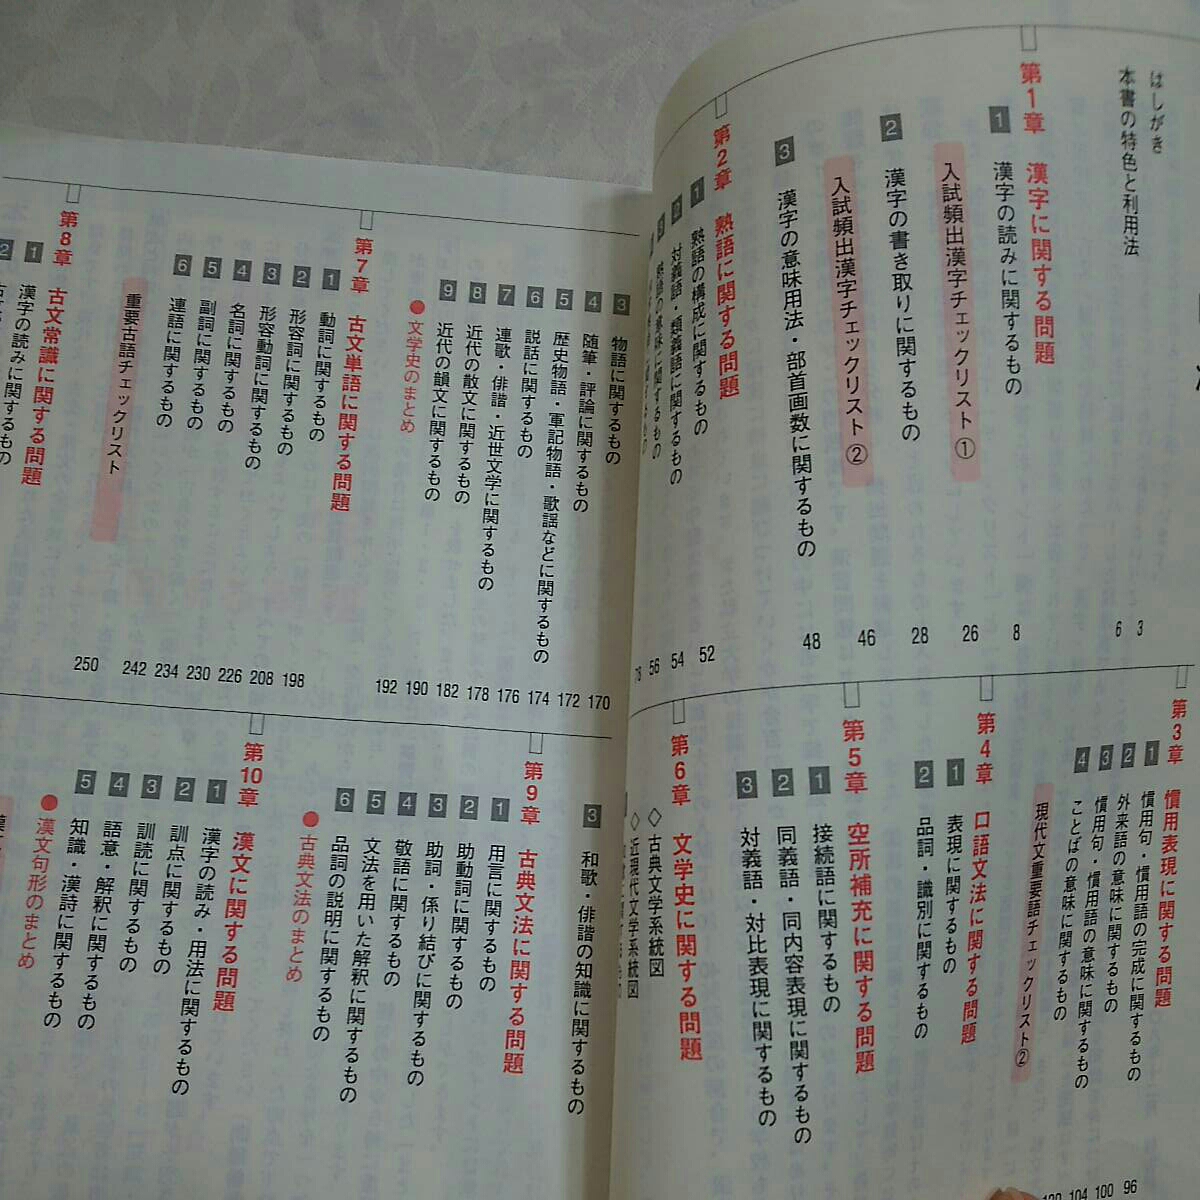 はしがき 3
本書の特色と利用法 6
第1章 漢字に関する問題
1 漢字の読みに関するもの 8
入試頻出漢字チェックリスト① 26
2 漢字の書き取りに関するもの 28
入試頻出漢字チェックリスト② 46
3 漢字の意味用法・部首画数に関するもの 48
第2章 熟語に関する問題
1 熟語の構成に関するもの 52
2 対義語・類義語に関するもの 54
3 熟語の意味に関するもの 56
78
第3章 慣用表現に関する問題
1 慣用句・慣用語の完成に関するもの 96
2 外来語の意味に関するもの 100
3 慣用句・慣用語の意味に関するもの 104
4 ことばの意味に関するもの
現代文重要語チェックリスト②
第4章 口語文法に関する問題
1 表現に関するもの
2 品詞・識別に関するもの
第5章 空所補充に関する問題
1 接続語に関するもの
2 同義語・同内容表現に関するもの
3 対義語・対比表現に関するもの
第6章 文学史に関する問題
◇古典文学系統図
◇近現代文学系統図
3 物語に関するもの 170
4 随筆・評論に関するもの 172
5 歴史物語・軍記物語・歌謡などに関するもの 174
6 説話に関するもの 176
7 連歌・俳諧・近世文学に関するもの 178
8 近代の散文に関するもの 182
9 近代の韻文に関するもの 190
●文学史のまとめ 192
第7章 古文単語に関する問題
1 動詞に関するもの 198
2 形容詞に関するもの 208
3 形容動詞に関するもの 226
4 名詞に関するもの 230
5 副詞に関するもの 234
6 連語に関するもの 242
重要古語チェックリスト 250
第8章 古文常識に関する問題
1 漢字の読みに関するもの
2
3 和歌・俳諧の知識に関するもの
第9章 古典文法に関する問題
1 用言に関するもの
2 助動詞に関するもの
3 助詞・係り結びに関するもの
4 敬語に関するもの
5 文法を用いた解釈に関するもの
6 品詞の説明に関するもの
●古典文法のまとめ
第10章 漢文に関する問題
1 漢字の読み・用法に関するもの
2 訓点に関するもの
3 訓読に関するもの
4 語意・解釈に関するもの
5 知識・漢詩に関するもの
●漢文句形のまとめ